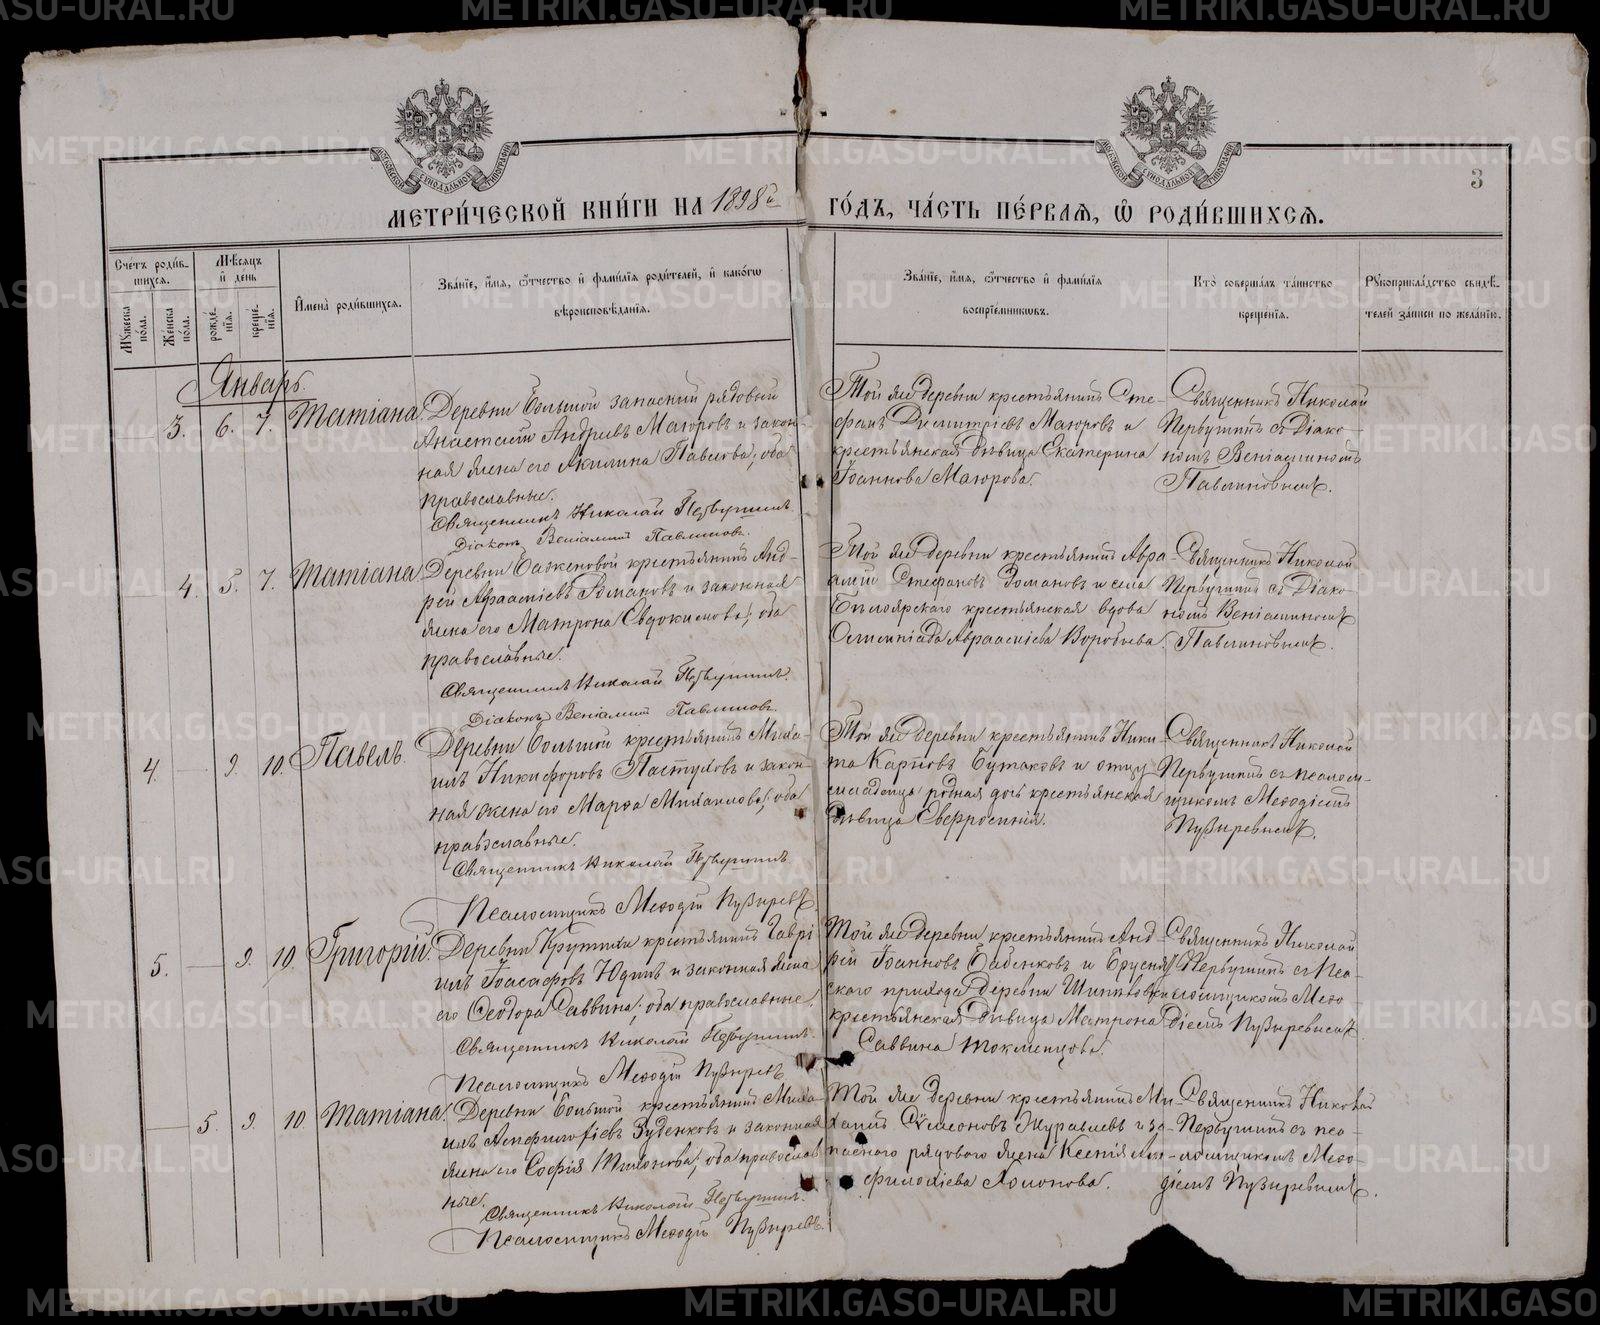 МЕТРИЧЕСКОЙ КНИГИ НА 1898й ГОДЪ, ЧАСТЬ ПЕРВАЯ, Ѡ РОДИВШИХСЯ.
3
Счетъ родившихся.
Мужеска пола.
Женска пола.
Мѣсяцъ и день
рожденія.
крещенія.
Имена родившихся.
Званіе, имя, ѿчество и фамилія родителей, и какогѡ
вѣроисповѣданія.
Званіе, имя, ѿчество и фамилія
воспріемникѡвъ.
Кто совершалъ таинство
крещенія.
Рукоприкладство свидѣ-
телей записи по желанію.
Январь.
3. 6. 7. Татіана
Деревни Большой запасный рядовой
Андреевъ Маюровъ и закон-
ная жена его Акилина Павлова; оба
православные.
Священникъ Николай Первушинъ.
Діаконъ Веніаминъ Павлиновъ.
Той же деревни крестьянинъ Сте-
фанъ Димитріевъ Маюровъ и
крестьянская дѣвица Екатерина
Іоаннова Маюрова.
Священникъ Николай
Первушинъ съ Діако-
номъ Веніаминомъ
Павлиновымъ.
4. 5. 7. Татіана
Деревни Баженовой крестьянинъ Анд-
рей Романовъ и законная
жена его Матрона Евдокимова; оба
православные.
Священникъ Николай Первушинъ.
Діаконъ Веніаминъ Павлиновъ.
Той же деревни крестьянинъ Авра-
амій Стефановъ Романовъ и села
Бѣлоярскаго крестьянская вдова
Олимпіада Аврааміева Воробьева.
Священникъ Николай
Первушинъ съ Діако-
номъ Веніаминомъ
Павлиновымъ.
4. 9. 10. Павелъ.
Деревни Большой крестьянинъ Миха-
илъ Никифоровъ Пастуховъ и закон-
ная жена его Марѳа Михаилова; оба
православные.
Священникъ Николай Первушинъ
Псаломщикъ Меѳодій Пузыревъ.
Той же деревни крестьянинъ Ники-
та Карповъ Бутаковъ и отцу
младенца родная дочь крестьянская
дѣвица Евфросинія.
Священникъ Николай
Первушинъ съ псалом-
щикомъ Меѳодіемъ
Пузыревымъ.
5. 9. 10. Григорій.
Деревни Крутихи крестьянинъ Гаврі-
илъ Іоасафовъ Юдинъ и законная жена
его Ѳеодора Саввина; оба православные.
Священникъ Николай Первушинъ.
Псаломщикъ Меѳодій Пузыревъ
Той же деревни крестьянинъ Анд-
рей Іоанновъ Бабенковъ и Брусян-
скаго прихода деревни
крестьянская дѣвица Матрона
Саввина Токманцова.
Священникъ Николай
Первушинъ съ Пса-
ломщикомъ Меѳо-
діемъ Пузыревымъ
5. 9. 10. Татіана.
Деревни Большой крестьянинъ Миха-
илъ Зуденковъ и законная
жена его Софія Тихонова; оба православ-
ные.
Священникъ Николай Первушинъ.
Псаломщикъ Меѳодій Пузыревъ.
Той же деревни крестьянинъ Ми-
хаилъ Сѷмеоновъ Журавлевъ и за-
паснаго рядоваго жена Ксенія Ам-
филохіева
Священникъ Николай
Первушинъ съ пса-
ломщикомъ Меѳо-
діемъ Пузыревымъ.
METRIKI.GASO-URAL.RU